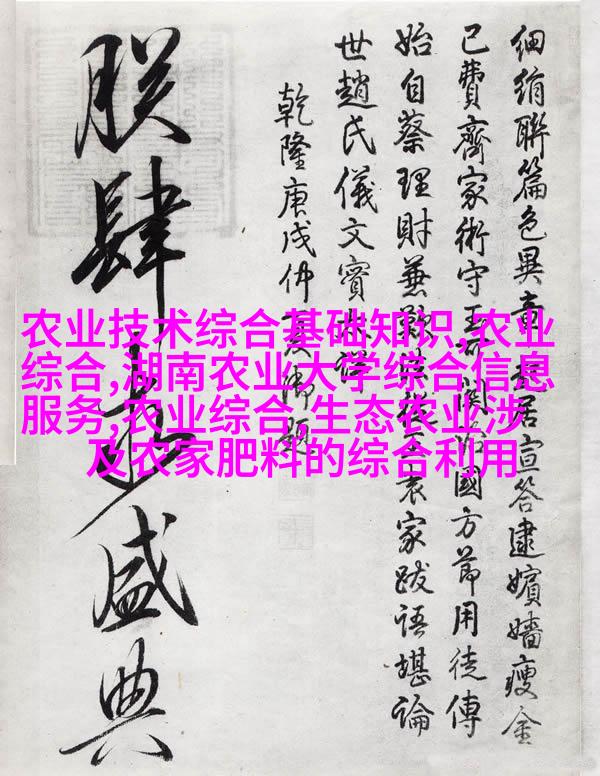 细绢聯篇色異書起居宣答逮嬪嬙瘦金
已費齊家術守王關治國方節用徒傳
始自蔡理財兼難袁家跋語堪論
世趙氏儀文實
乾隆庚戌仲夏御題
肆盛典
农业技术综合基础知识,农业
综合,湖南农业大学综合信息
服务,农业综合,生态农业涉
及农家肥料的综合利用